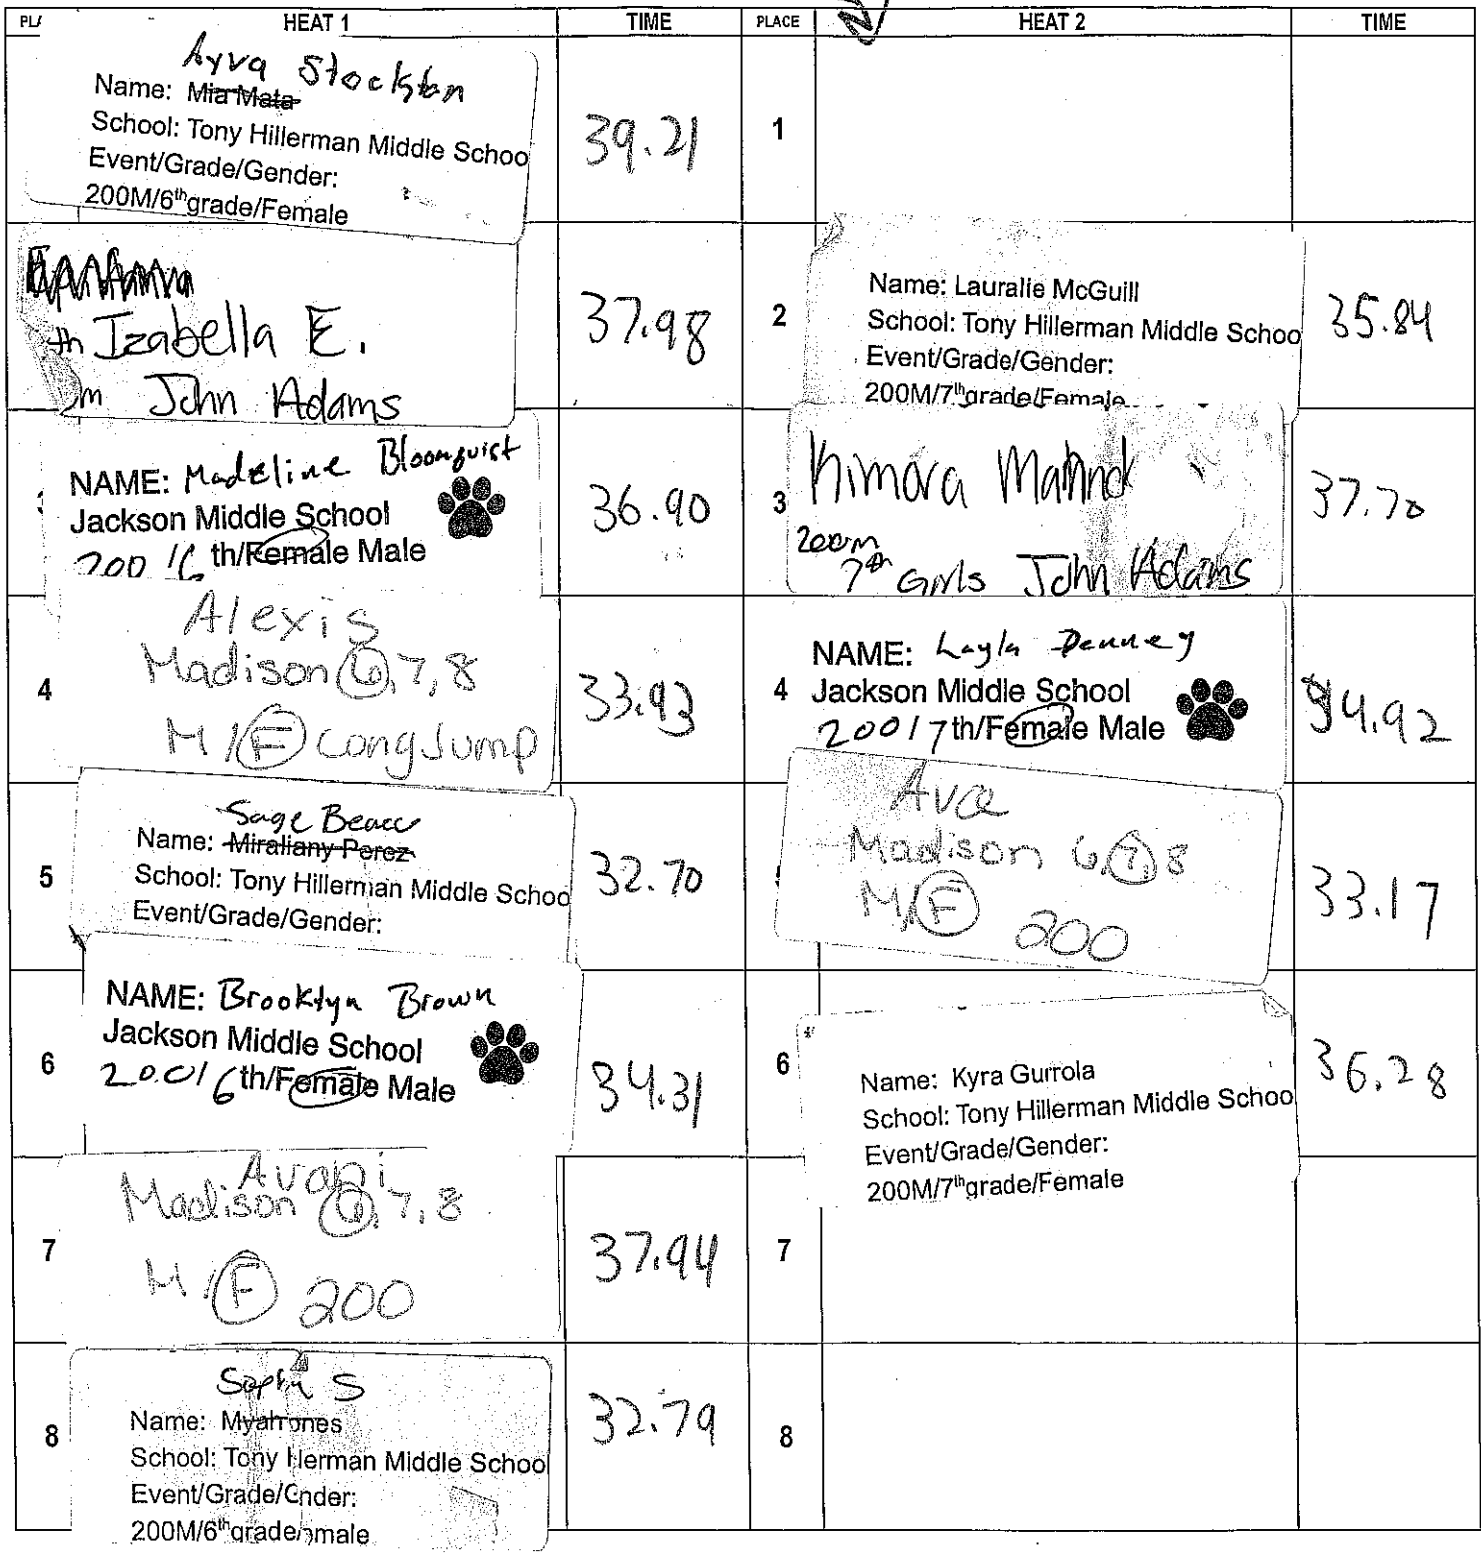 HEAT 1 TIME PLACE HEAT 2 TIME
Ayva Stockton
Name: Mia Mata
School: Tony Hillerman Middle Schoo
Event/Grade/Gender:
200M/6th grade/Female
39.21
1
th Izabella E.
m John Adams
37.98
2
Name: Lauralie McGuill
School: Tony Hillerman Middle Schoo
Event/Grade/Gender:
200M/7th grade/Female
35.84
NAME: Madeline Bloomquist
Jackson Middle School
200 / 6 th/Female Male
36.90
3
Kimora
200m
7th Girls John Adams
37.70
4
Alexis
Madison 6, 7, 8
M / F Long Jump
33.93
4
NAME: Layla Denney
Jackson Middle School
200 / 7 th/Female Male
34.92
5
Sage
Name: Miraliany Perez
School: Tony Hillerman Middle Schoo
Event/Grade/Gender:
32.70
Ava
Madison 6, 7, 8
M/F 200
33.17
6
NAME: Brooklyn Brown
Jackson Middle School
200 / 6 th/Female Male
34.31
6
Name: Kyra Gurrola
School: Tony Hillerman Middle Schoo
Event/Grade/Gender:
200M/7th grade/Female
36.28
7
Avani
Madison 6, 7, 8
M / F 200
37.94
7
8
S
Name:
School: Tony Herman Middle Schoo
Event/Grade/Gnder:
200M/6th grade/male
32.79
8